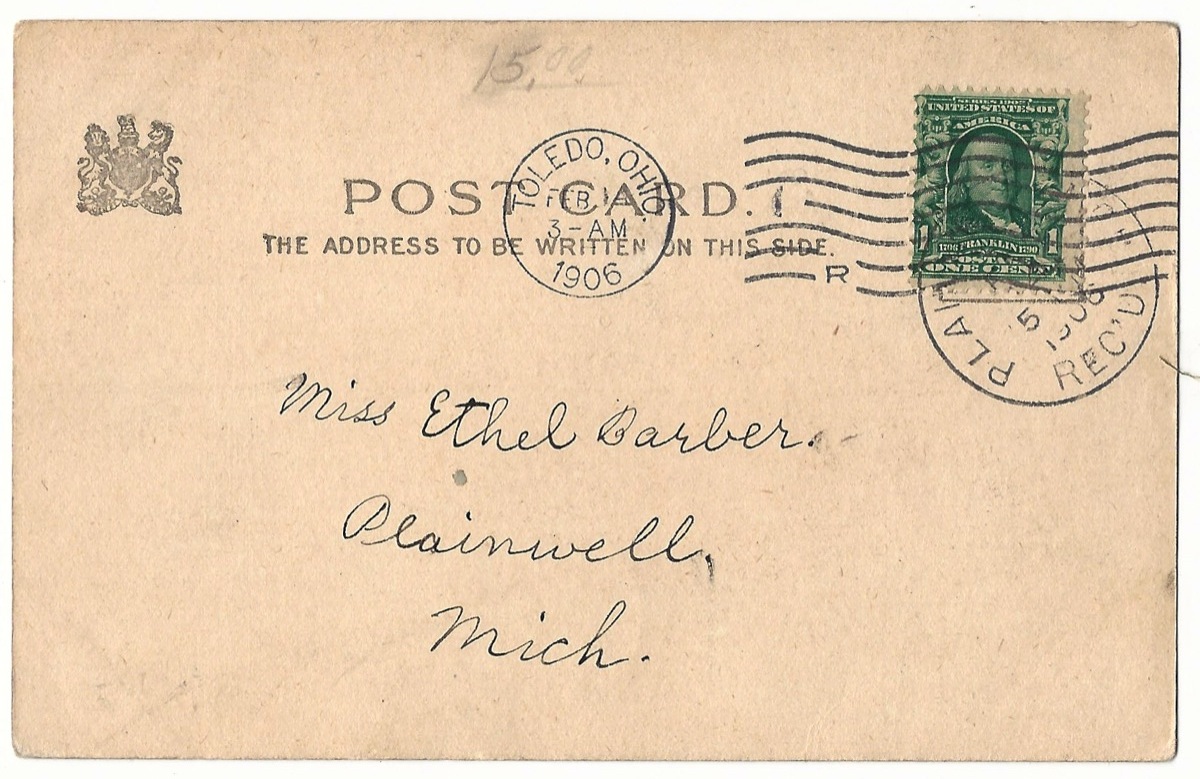 15.00
POST CARD.
THE ADDRESS TO BE WRITTEN ON THIS SIDE.
TOLEDO, OHIO
FEB.
3-AM
1906
R
SERIES 1902
UNITED STATES OF
AMERICA
1706 FRANKLIN 1790
POSTAGE
1 ONE CENT 1
5
1906
REC'D
Miss Ethel Barber.
Plainwell,
Mich.